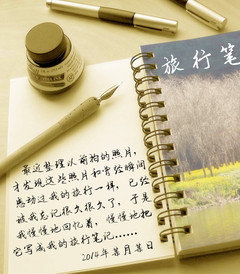 旅行笔
最近整理以前拍的照片，
才发现这些照片和曾经瞬间
感动过我的旅行一样，已经
被我忘记很久很久了，于是
我慢慢地回忆着，慢慢地把
它写成我的旅行笔记……
2014年某月某日